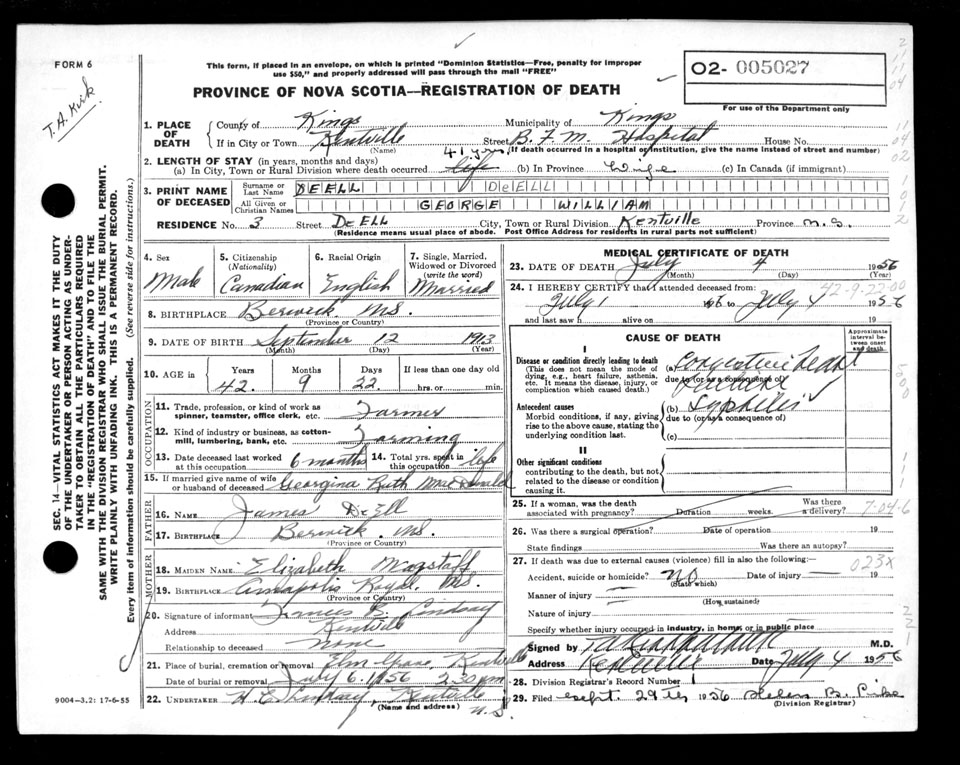 FORM 6
T.A. Kirk
This form, if placed in an envelope, on which is printed "Dominion Statistics—Free, penalty for improper
use $50," and properly addressed will pass through the mail "FREE"
PROVINCE OF NOVA SCOTIA—REGISTRATION OF DEATH
O2- 005027
For use of the Department only
1. PLACE OF DEATH
County of Kings Municipality of Kings
If in City or Town Kentville Street B.F.M. Hospital House No.
(Name) (If death occurred in a hospital or institution, give the name instead of street and number)
2. LENGTH OF STAY (in years, months and days) 41 yrs
(a) In City, Town or Rural Division where death occurred life (b) In Province Life (c) In Canada (if immigrant)
3. PRINT NAME OF DECEASED
Surname or Last Name DEELL DeELL
All Given or Christian Names GEORGE WILLIAM
RESIDENCE No. 3 Street De Ell City, Town or Rural Division Kentville Province N.S.
(Residence means usual place of abode. Post Office Address for residents in rural parts not sufficient)
4. Sex Male
5. Citizenship (Nationality) Canadian
6. Racial Origin English
7. Single, Married, Widowed or Divorced (write the word) Married
8. BIRTHPLACE Berwick N.S.
(Province or Country)
9. DATE OF BIRTH September 12 1913
(Month) (Day) (Year)
10. AGE in Years Months Days If less than one day old
42. 9 22 hrs. or min.
OCCUPATION
11. Trade, profession, or kind of work as spinner, teamster, office clerk, etc. Farmer
12. Kind of industry or business, as cotton-mill, lumbering, bank, etc. Farming
13. Date deceased last worked at this occupation 6 months 14. Total yrs. spent in this occupation life
15. If married give name of wife or husband of deceased Georgina Ruth MacDonald
FATHER
16. NAME James DeEll
17. BIRTHPLACE Berwick N.S.
(Province or Country)
MOTHER
18. MAIDEN NAME Elizabeth Magstaff
19. BIRTHPLACE Annapolis Royal N.S.
(Province or Country)
20. Signature of informant Lindsay
Address Kentville
Relationship to deceased none
21. Place of burial, cremation or removal Elm Grove, Kentville
Date of burial or removal July 6. 1956 2.30 pm
22. UNDERTAKER Lindsay, Kentville N.S.
(Name and address)
MEDICAL CERTIFICATE OF DEATH
23. DATE OF DEATH July 4 1956
(Month) (Day)
24. I HEREBY CERTIFY that I attended deceased from: 42-9-22-00
July 1 1956 to July 4 1956
and last saw h alive on 19
CAUSE OF DEATH
Approximate interval between onset and death
I
Disease or condition directly leading to death
(This does not mean the mode of dying, e.g., heart failure, asthenia, etc. It means the disease, injury, or complication which caused death.)
(a) Congestive heart
due to (or as a consequence of) failure
Antecedent causes
Morbid conditions, if any, giving rise to the above cause, stating the underlying condition last.
(b) Syphilis
due to (or as a consequence of)
(c)
II
Other significant conditions
contributing to the death, but not related to the disease or condition causing it.
25. If a woman, was the death associated with pregnancy? Duration weeks. Was there a delivery?
7-04-6
26. Was there a surgical operation? Date of operation 19
State findings Was there an autopsy?
27. If death was due to external causes (violence) fill in also the following:—
023X
Accident, suicide or homicide? no Date of injury 19
(State which)
Manner of injury
(How sustained)
Nature of injury
Specify whether injury occurred in industry, in home, or in public place
Signed by M.D.
Address Kentville Date July 4 1956
28. Division Registrar's Record Number 1
29. Filed Sept. 29th 1956 Helen B. Pike
(Division Registrar)
SEC. 14—VITAL STATISTICS ACT MAKES IT THE DUTY
OF THE UNDERTAKER OR PERSON ACTING AS UNDER-
TAKER TO OBTAIN ALL THE PARTICULARS REQUIRED
IN THE "REGISTRATION OF DEATH" AND TO FILE THE
SAME WITH THE DIVISION REGISTRAR WHO SHALL ISSUE THE BURIAL PERMIT.
WRITE PLAINLY WITH UNFADING INK. THIS IS A PERMANENT RECORD.
Every item of information should be carefully supplied. (See reverse side for instructions.)
9004-3.2: 17-6-55